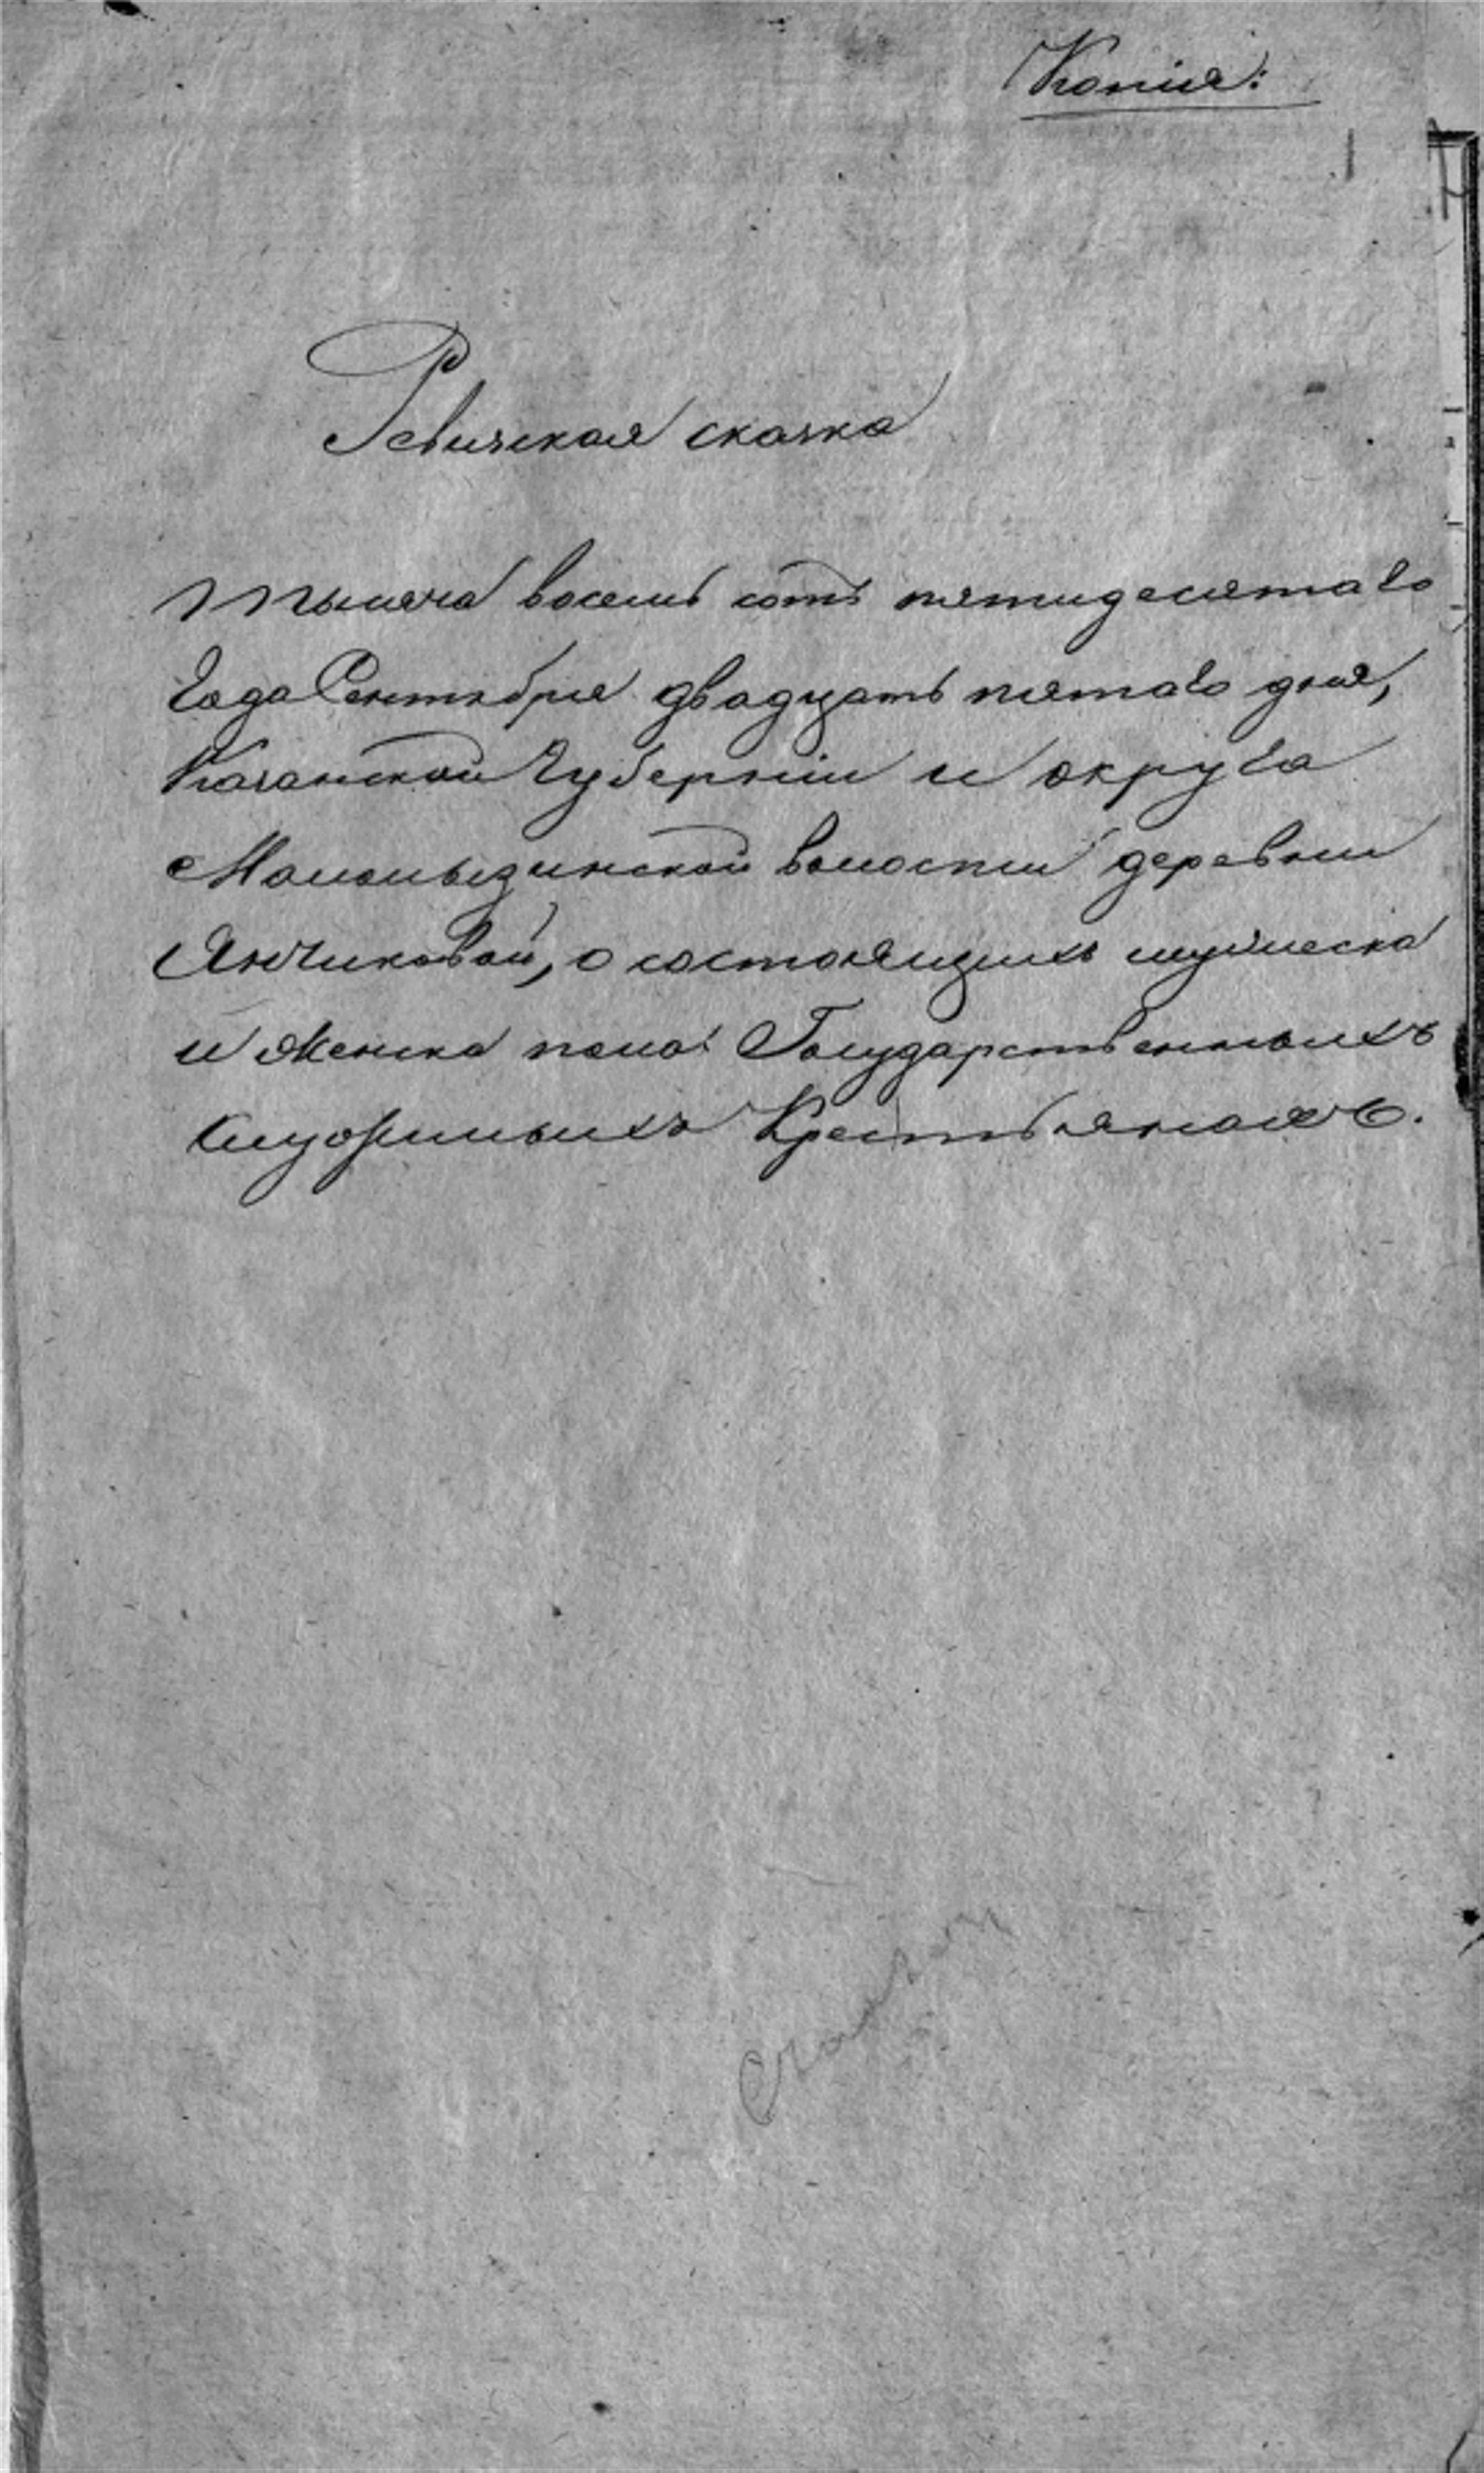 Копія:
Ревизская сказка
Тысяча восемь сотъ пятидесятаго
года Сентября двадцать пятаго дня,
Казанской Губерніи и округа
волости деревни
Янчиковой, о состоящихъ мужеска
и женска пола Государственныхъ
Крестьянахъ.